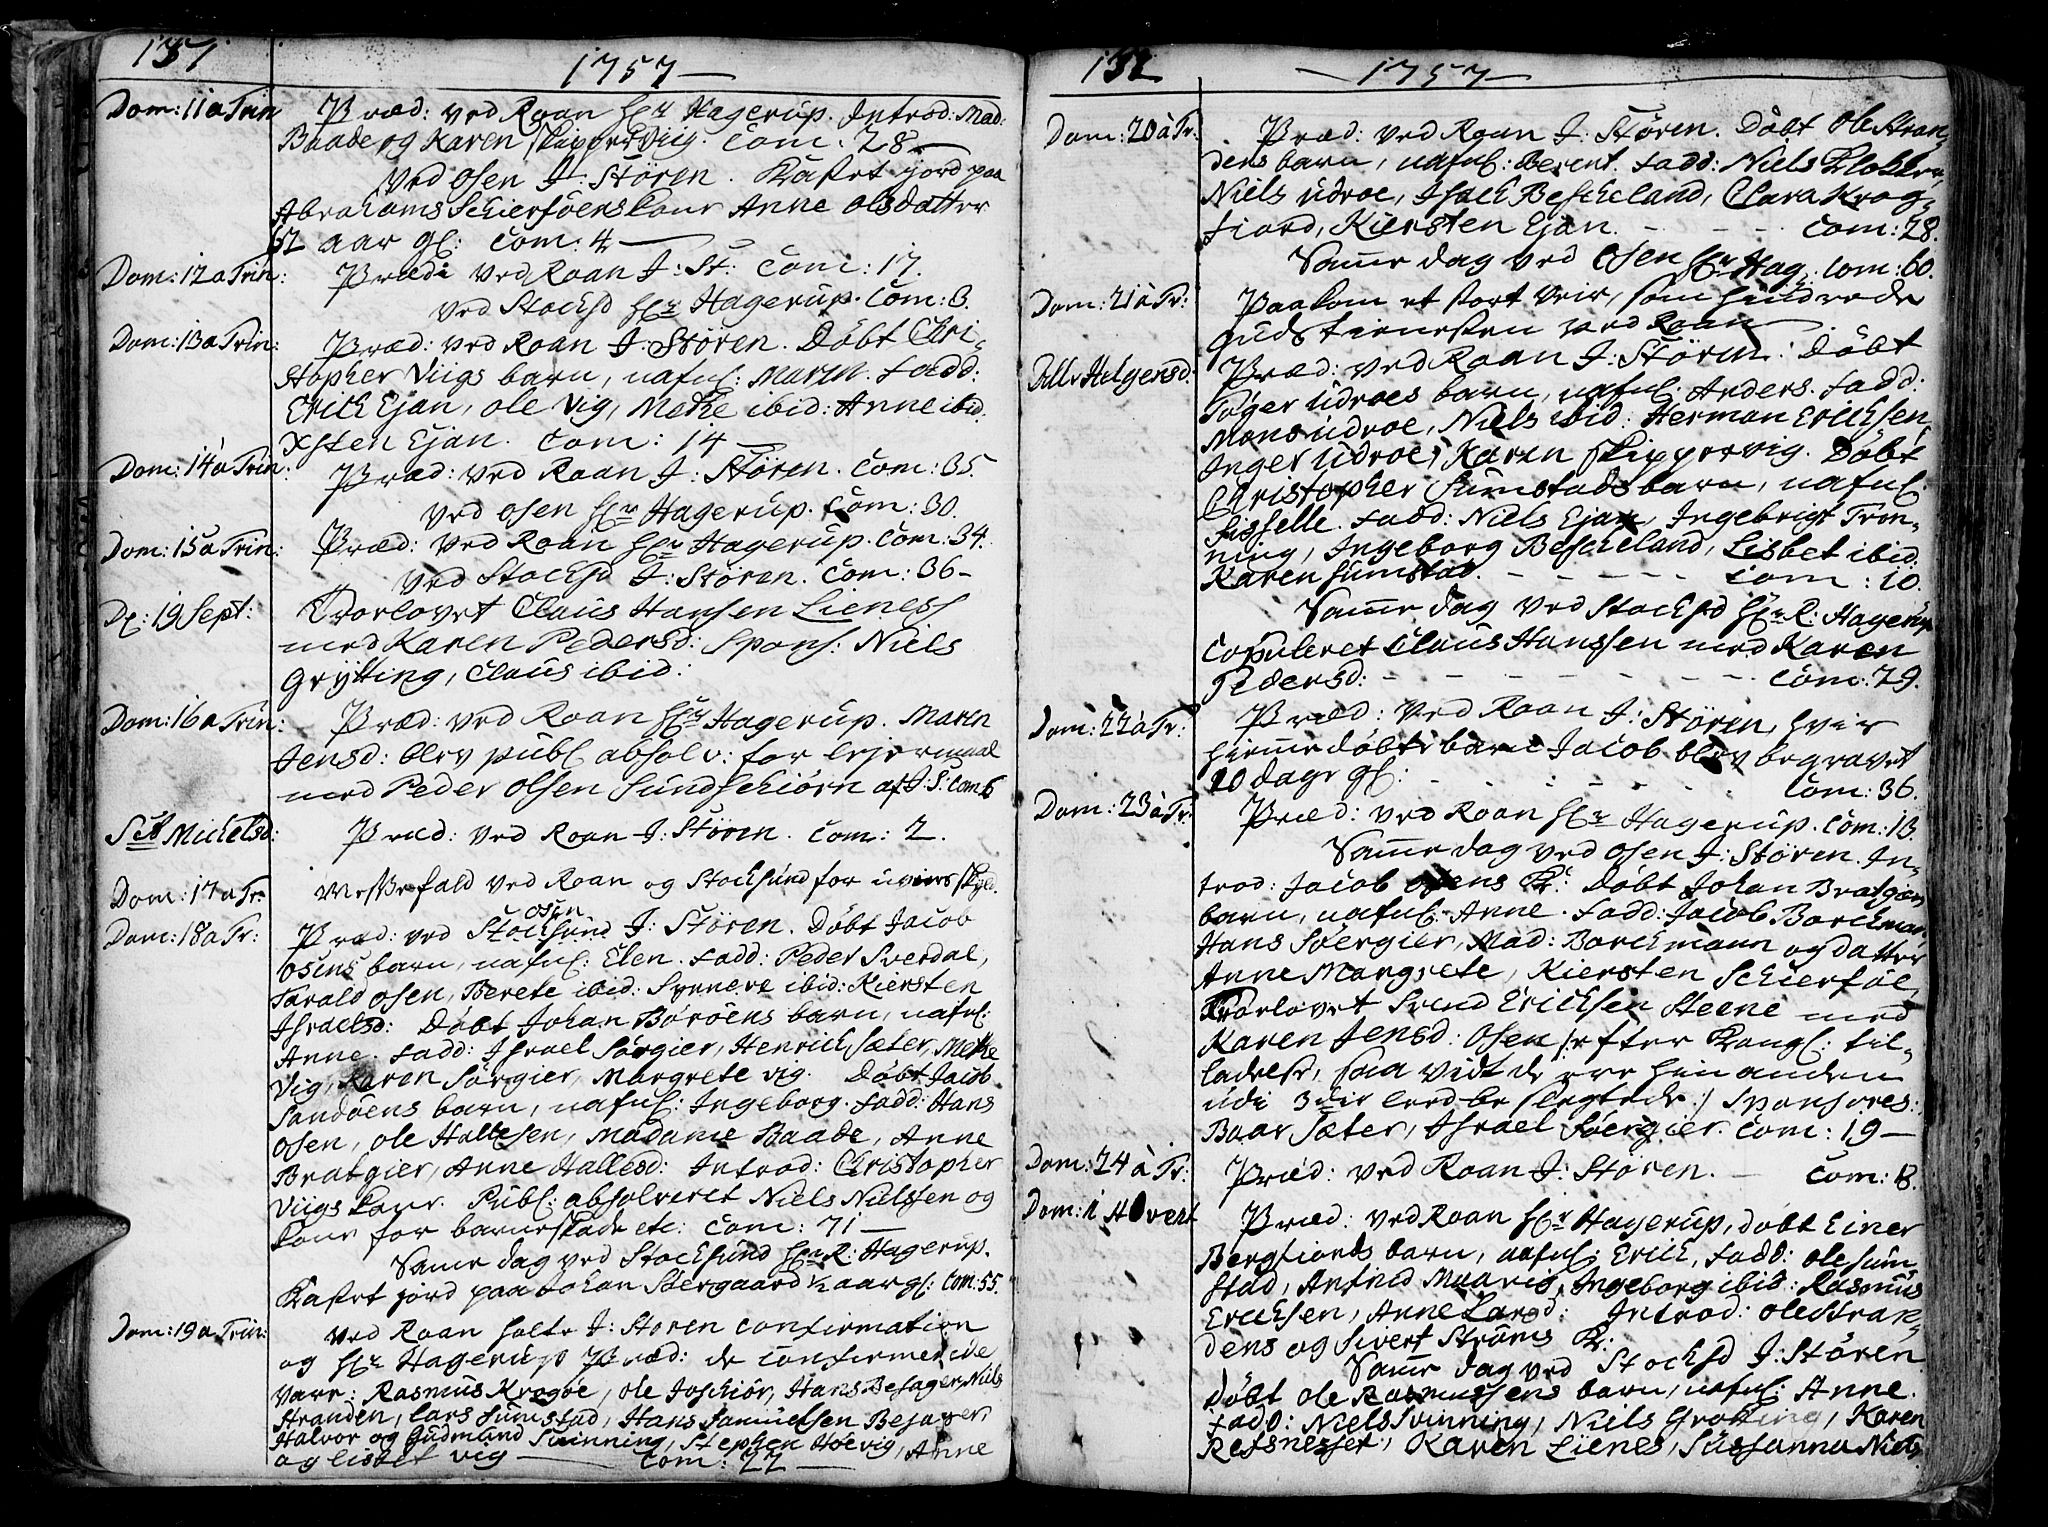 137
1757
Dom: 11 a Trin
Præd: ved Roan Hr Hagerup. Introd: Mad:
Baade og Karen Skippervig. Com. 28
ved Osen J: Stören. Kastet jord paa
Abrahams Schierföens kone Anne Olsdatter
aar gl: Com: 4
Dom: 12 a Trin:
Præd: ved Roan J: St: Com: 17.
ved Stocksd Hr Hagerup. Com: 3.
Dom: 13 a Trin:
Præd: ved Roan J: Stören. Döbt Chri-
stopher Viigs barn, nafnl: Maren. Fadd:
Erich Ejan, Ole Vig, Metke ibid: Anne ibid:
Xsten Ejan. Com: 14
Dom: 14 a Trin:
Præd: ved Roan J: Stören. Com: 35.
ved Osen Hr Hagerup. Com: 30.
Dom: 15 a Trin:
Præd: ved Roan Hr Hagerup. Com: 34.
ved Stocksd J: Stören. Com: 36
D: 19 Sept:
Trorlovet Claus Hansen Lieness
med Karen Pedersd: Spons: Niels
Grytting, Claus ibid:
Dom: 16 a Trin:
Præd: ved Roan Hr Hagerup. Maren
Jensd: blev publ absolv: for lejermaal
med Peder Olsen Sundschiörn af J: S: Com 6
Sct Michelsd:
Præd: ved Roan J: Stören. Com: 2.
Dom: 17 a Tr:
Messefald ved Roan og Stocksund for uveirs skyld.
Dom: 18 a Tr:
Præd: ved Stocksund Osen J: Stören. Döbt Jacob
Osens barn, nafnl: Elen. Fadd: Peder Sverdal,
Tarald Osen, Berete ibid: Synneve ibid: Kiersten
Israelsd: Döbt Johan Böröens barn, nafnl:
Anne. Fadd: Israel Sörgier, Henrich Sæter, Metke
Vig, Karen Sörgier, Margrete Vig. Döbt Jacob
Sandöens barn, nafnl: Ingeborg. Fadd: Hans
Osen, Ole Hallesen, Madame Baade, Anne
Bratgier, Anne Hallesd: Introd: Christopher
Viigs kone. Publ: absolveret Niels Nielssen og
kone for barneskade etc: Com: 71
Same dag ved Stocksund Hr R: Hagerup.
Kastet jord paa Johan Sörgaard ½ aar gl: Com: 55.
Dom: 19 a Trin:
Ved Roan holte J: Stören confirmation
og Hr Hagerup Præd: de confirmerede
vare: Rasmus Krogöe, Ole Joschiör, Hans Besager, Niels
Stranden, Lars Sumstad, Hans Samuelsen Besager,
Halvor og Gudmund Svinning, Stephen Höevig, Anne
og Lisbet Vig Com: 22
132
1757
Dom: 20 à Tr:
Præd: ved Roan J: Stören. Döbt Ole Stran-
dens barn, nafnl: Berent. Fadd: Niels Klokker,
Niels Udroe, Isach Bescheland, Clara Krog-
fiord, Kiersten Ejan. Com: 28.
Same dag ved Osen Hr Hag. Com: 60.
Dom: 21 à Tr:
Paakom et stort veir, som hindrede
Gudstienesten ved Roan
Alle Helgensd:
Præd: ved Roan J: Stören: Döbt
Töger Udroes barn, nafnl: Anders. Fadd:
Mons Udroe, Niels ibid: Herman Erichsen,
Inger Udroe, Karen Skippervig. Döbt
Christopher Sumstads barn, nafnl
Sisselle. Fadd: Niels Ejan, Ingebrigt Trön-
ning, Ingeborg Bescheland, Lisbet ibid
Karen Sumstad. Com: 10.
Same dag ved Stocksd Hr R: Hagerup
Copuleret Claus Hanssen med Karen
Pedersd: Com: 29.
Dom: 22 à Tr:
Præd: ved Roan J: Stören, hvis
hiemedöbte barn Jacob blev begravet
20 dage gl: Com: 36.
Dom: 23 à Tr:
Præd: ved Roan Hr Hagerup. Com: 13.
Same dag ved Osen J: Stören. In-
trod: Jacob Osens K: Döbt Johan Bratgiers
barn, nafnl: Anne. Fadd: Jacob Borckman,
Hans Söergier, Mad: Borckmann og datter
Anne Margrete, Kiersten Schierföe,
Trorlovet Svend Erichsen Steene med
Karen Jensd: Osen /: efter Kongl: til-
ladelse, saa vidt de ere hinanden
udi 3die leed beslegtede :/ Sponsores:
Baar Sæter, Israel Söergier. Com: 19
Dom: 24 à Tr:
Præd: ved Roan J: Stören. Com: 8.
Dom: 1 Advent
Præd: ved Roan Hr Hagerup, döbt Einer
Bergfiords barn, nafnl: Erich, Fadd: Ole Sum-
stad, Anfind Maarvig, Ingeborg ibid: Rasmus
Erichsen, Anne Larsd: Introd: Ole Stran-
dens og Sivert Ströms K:
Same dag ved Stocksd J: Stören
Döbt Ole Rasmussens barn, nafnl: Anne.
Fadd: Niels Svinning, Niels Grötting, Karen
Retsnesset, Karen Lienes, Susanna Niels